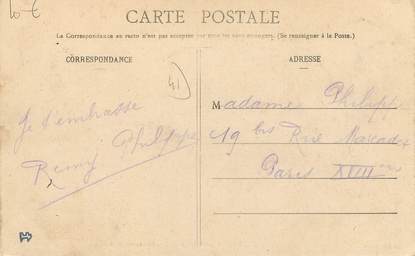 10 €
CARTE POSTALE
La Correspondance au recto n'est pas acceptée par tous les pays étrangers. (Se renseigner à la Poste.)
CORRESPONDANCE
ADRESSE
41
Je t'embrasse
Remy Philippe
Madame Philippe
19 bis Rue Marcadet
Paris XVIIIème